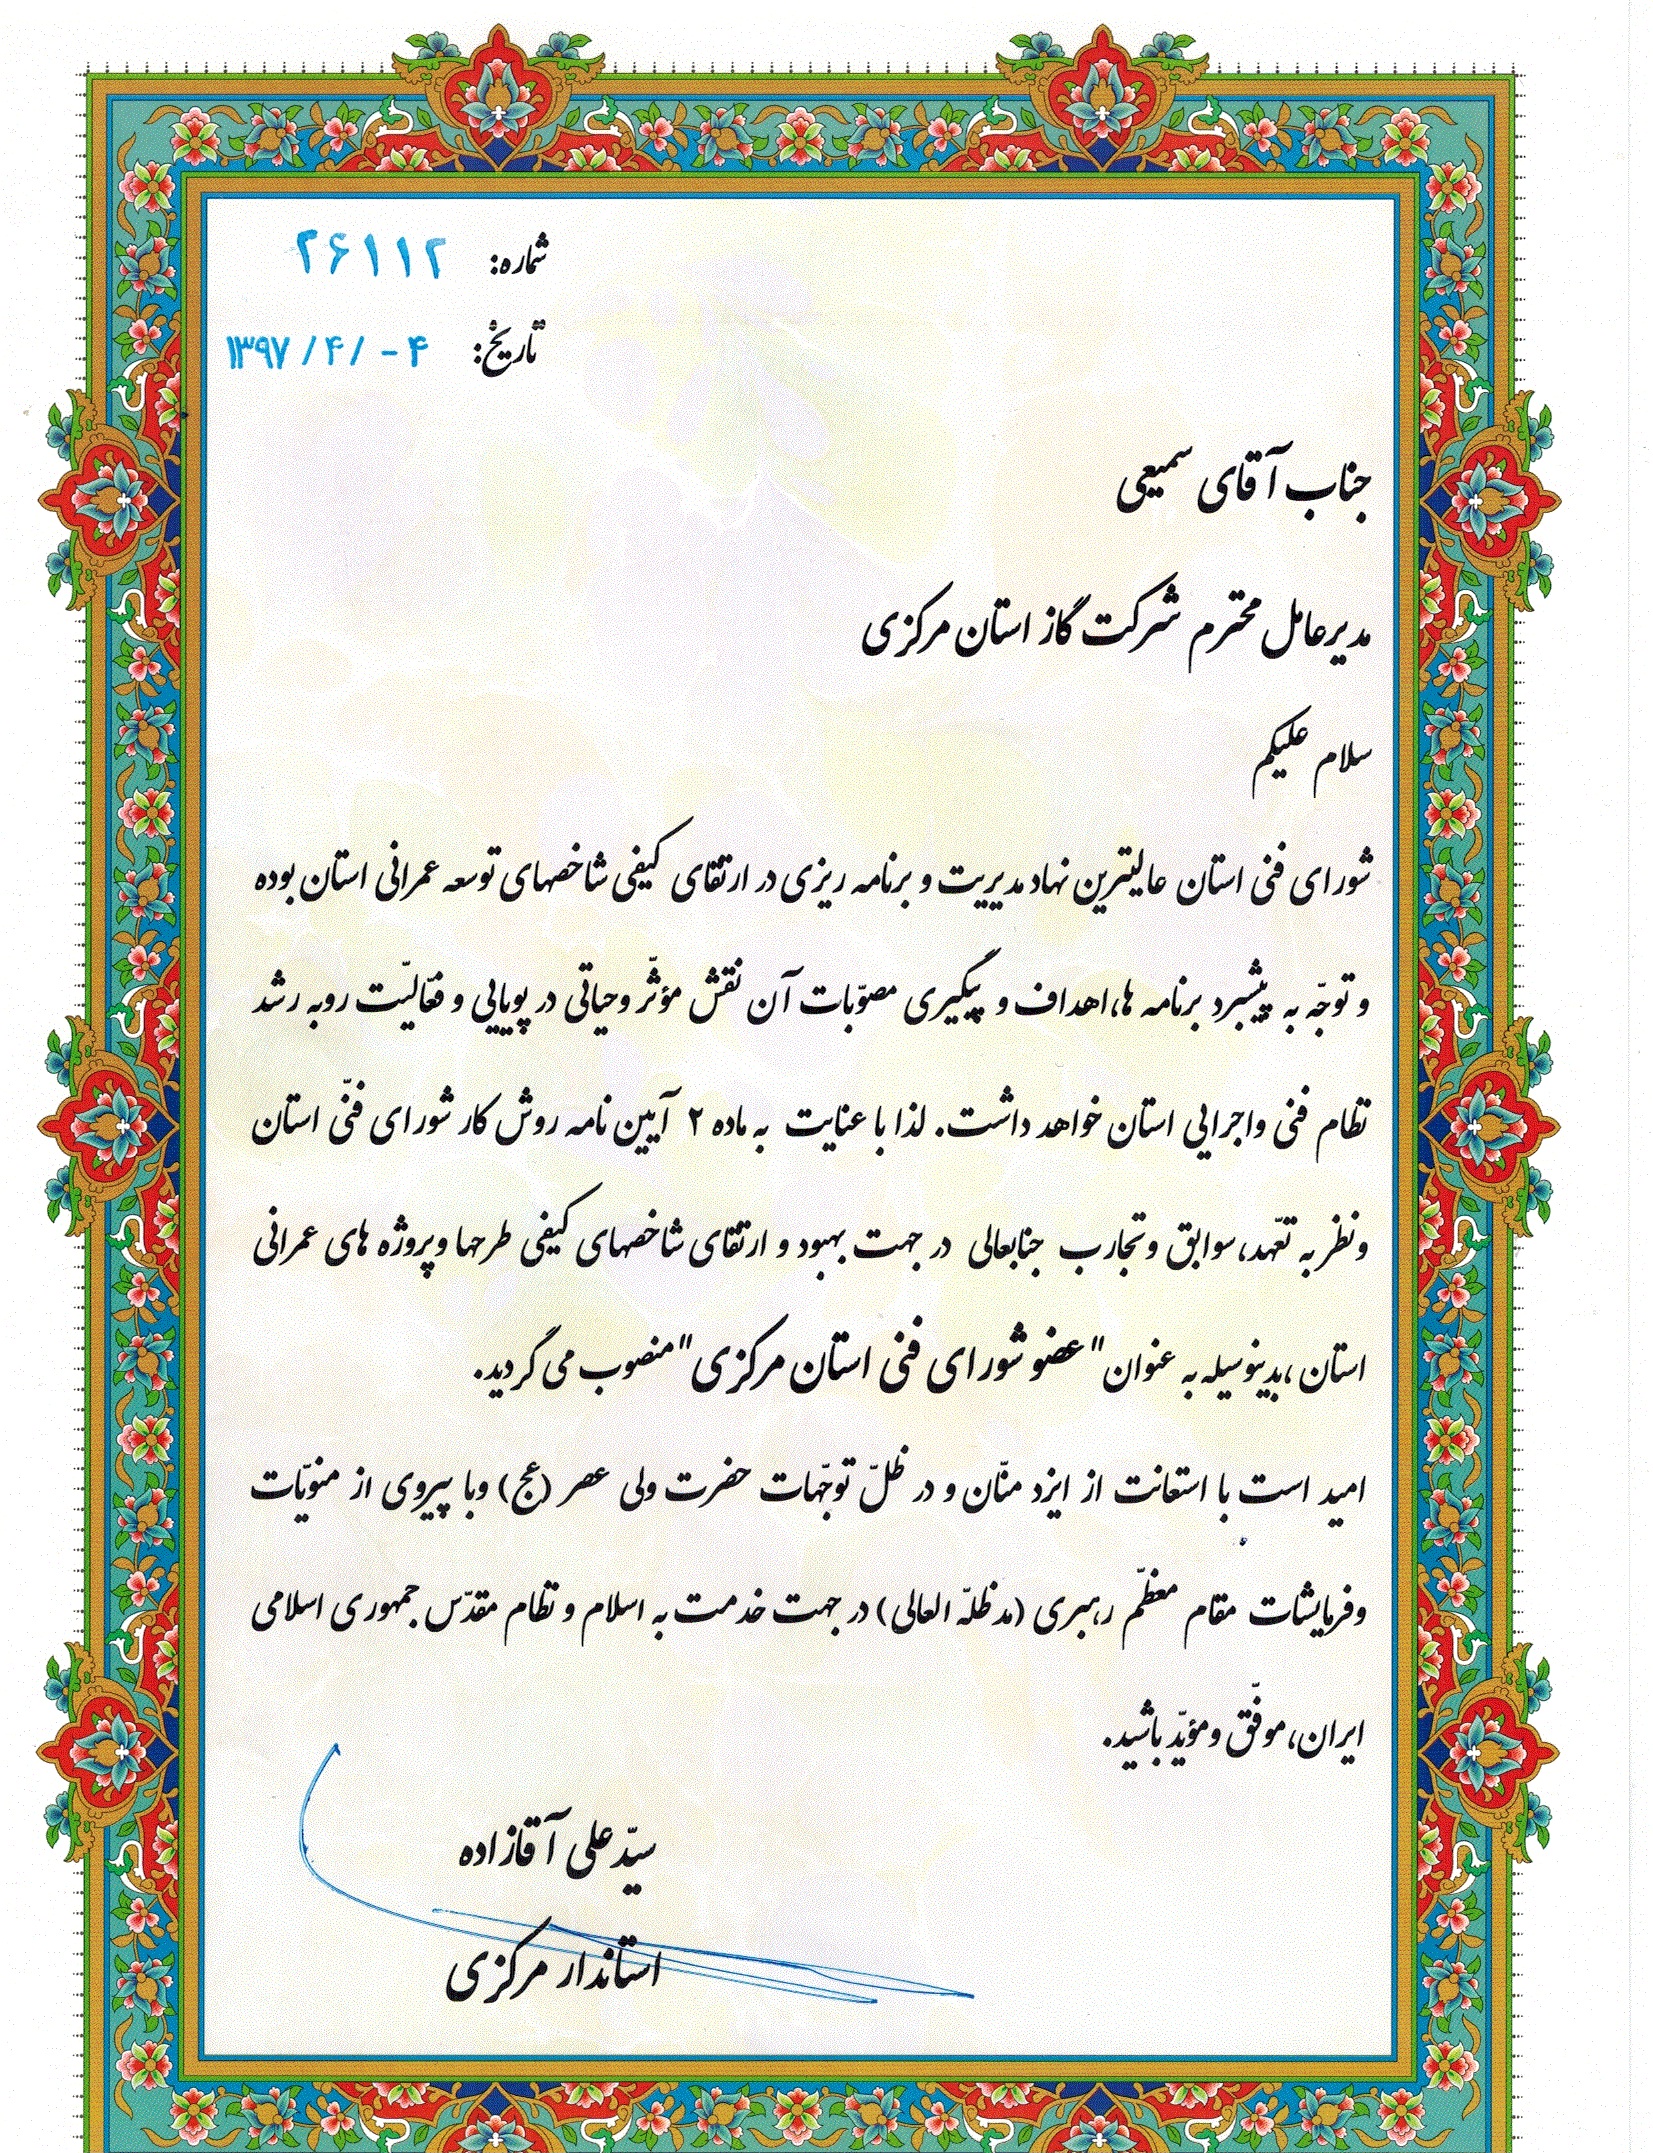 شماره: ۲۶۱۱۲
تاریخ: ۴ - /۴ / ۱۳۹۷
جناب آقای سمیعی
مدیرعامل محترم شرکت گاز استان مرکزی
سلام علیکم
شورای فنی استان عالیترین نهاد مدیریت و برنامه ریزی در ارتقای کیفی شاخصهای توسعه عمرانی استان بوده
و توجّه به پیشبرد برنامه ها، اهداف و پیگیری مصوّبات آن نقش مؤثّر وحیاتی در پویایی و فعّالیّت روبه رشد
نظام فنی واجرایی استان خواهد داشت. لذا با عنایت به ماده ۲ آیین نامه روش کار شورای فنّی استان
ونظر به تعّهد، سوابق وتجارب جنابعالی در جهت بهبود و ارتقای شاخصهای کیفی طرحها وپروژه های عمرانی
استان ،بدینوسیله به عنوان "عضو شورای فنی استان مرکزی" منصوب می گردید.
امید است با استعانت از ایزد منّان و در ظلّ توجّهات حضرت ولی عصر (عج) وبا پیروی از منویّات
وفرمایشات مقام معظّم رهبری (مدظلّه العالی) در جهت خدمت به اسلام و نظام مقدّس جمهوری اسلامی
ایران، موفّق ومؤیّد باشید.
سیّد علی آقازاده
استاندار مرکزی